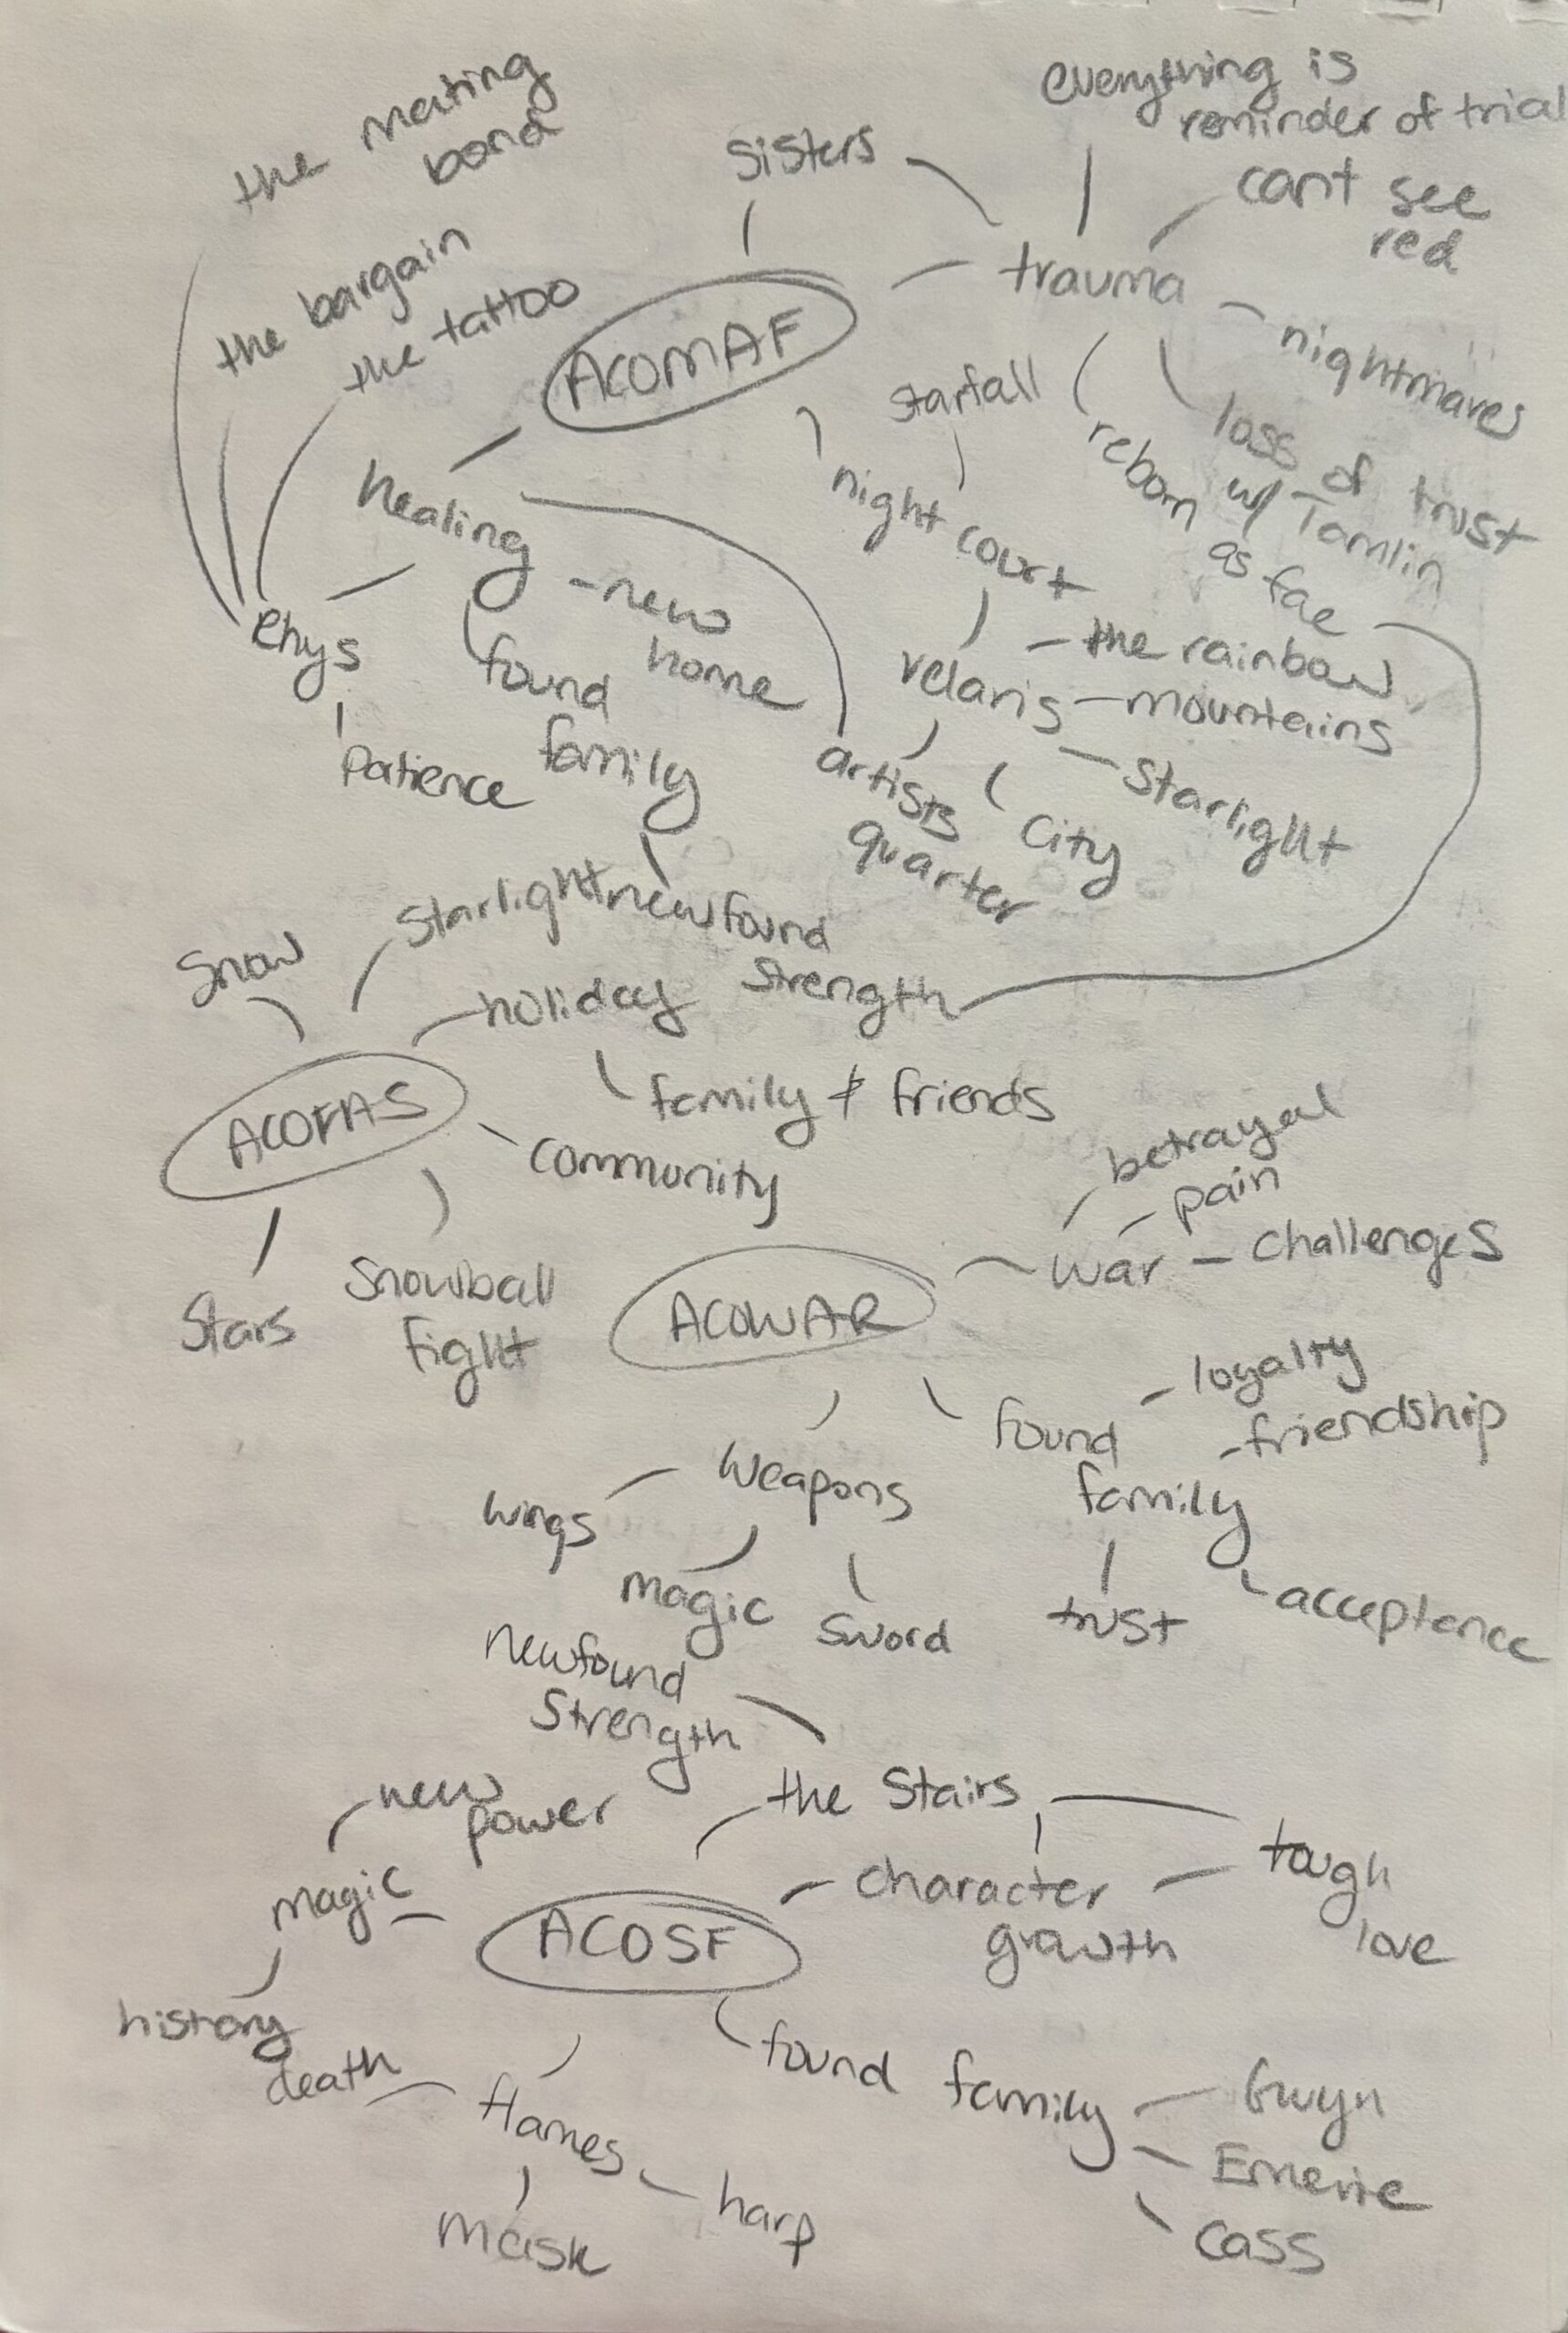 the mating
bond
the bargain
the tattoo
sisters
everything is
reminder of trial
cant see
red
trauma
nightmares
loss of trust
w/ Tamlin
reborn
as fae
ACOMAF
starfall
night court
velaris
the rainbow
mountains
starlight
city
artists
quarter
healing
new
home
found
family
Rhys
patience
newfound
strength
Starlight
Snow
holiday
family & friends
ACOFAS
community
Stars
Snowball
fight
ACOWAR
war
betrayal
pain
challenges
found
family
loyalty
friendship
trust
acceptance
weapons
wings
magic
sword
newfound
strength
the stairs
new
power
magic
history
ACOSF
character
growth
tough
love
flames
death
mask
harp
found family
Gwyn
Emerie
Cass